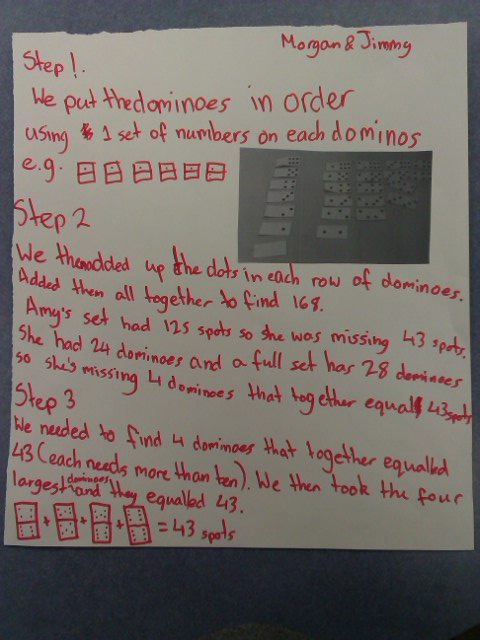 Morgan & Jimmy
Step 1.
We put the dominoes in order
using 1 set of numbers on each dominos
e.g.
Step 2
We then added up the dots in each row of dominoes.
Added them all together to find 168.
Amy's set had 125 spots so she was missing 43 spots.
She had 24 dominoes and a full set has 28 dominoes
so she's missing 4 dominoes that together equals 43 spots
Step 3
We needed to find 4 dominoes that together equalled
43 (each needs more than ten). We then took the four
largest dominoes and they equalled 43.
+ + + = 43 spots